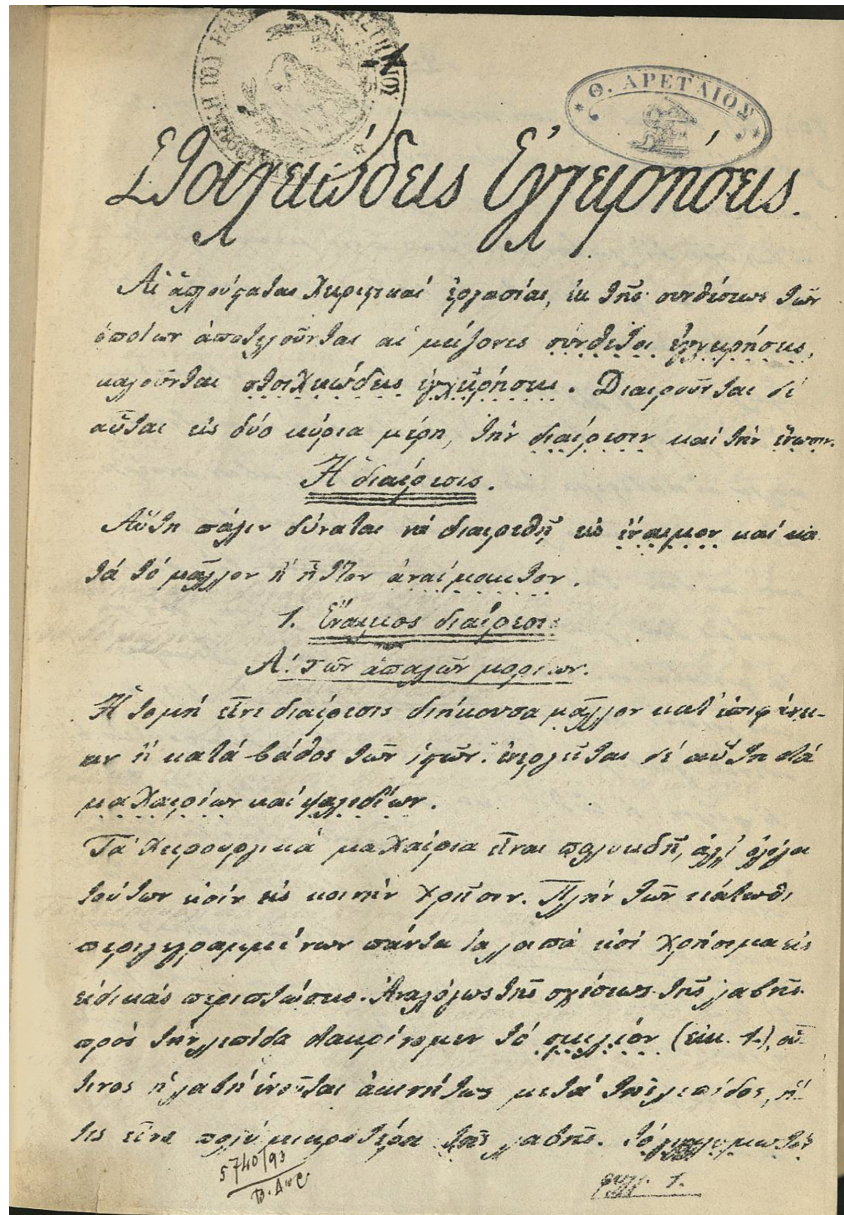 Θ. ΑΡΕΤΑΙΟΣ
Στοιχειώδεις Ἐγχειρήσεις.
Αἱ ἁπλούσταται χειρητικαί ἐργασίαι, ἐκ τῆς συνθέσεως τῶν
ὁποίων ἀποτελοῦνται αἱ μείζονες σύνθετοι ἐγχειρήσεις,
καλοῦνται στοιχειώδεις ἐγχειρήσεις. Διαιροῦνται δέ
αὗται εἰς δύο κύρια μέρη, τήν διαίρεσιν καί τήν ἕνωσιν.
Ἡ διαίρεσις.
Αὕτη πάλιν δύναται νά διαιρεθῇ εἰς ἔναιμον καί κα
τά τό μᾶλλον ἤ ἧττον ἀναίμακτον.
1. Ἔναιμος διαίρεσις
Α'. τῶν ἁπαλῶν μορίων.
Ἡ τομή εἶνε διαίρεσις διήκουσα μᾶλλον κατ' ἐπιφάνει-
αν ἤ κατά βάθος τῶν ἱστῶν. ἐνεργεῖται δέ αὕτη διά
μαχαιρίων καί ψαλιδίων.
Τά χειρουργικά μαχαίρια εἶναι πολυειδῆ, ἀλλ' ὀλίγα
τούτων εἰσίν εἰς κοινήν χρῆσιν. Πλήν τῶν κάτωθι
περιγεγραμμένων πάντα τά λοιπά εἰσί χρήσιμα εἰς
εἰδικάς περιστάσεις. Ἀναλόγως τῆς σχέσεως τῆς λαβῆς
πρός τήν λεπίδα διακρίνομεν τό σμιλίον (εἰκ. 1.), οὗ
τινος ἡ λαβή ἑνοῦται ἀκινήτως μετά τῆς λεπίδος, ἥ
τις εἶνε πολύ μικροτέρα τῆς λαβῆς. τό
5740/93
φυλ. 1.